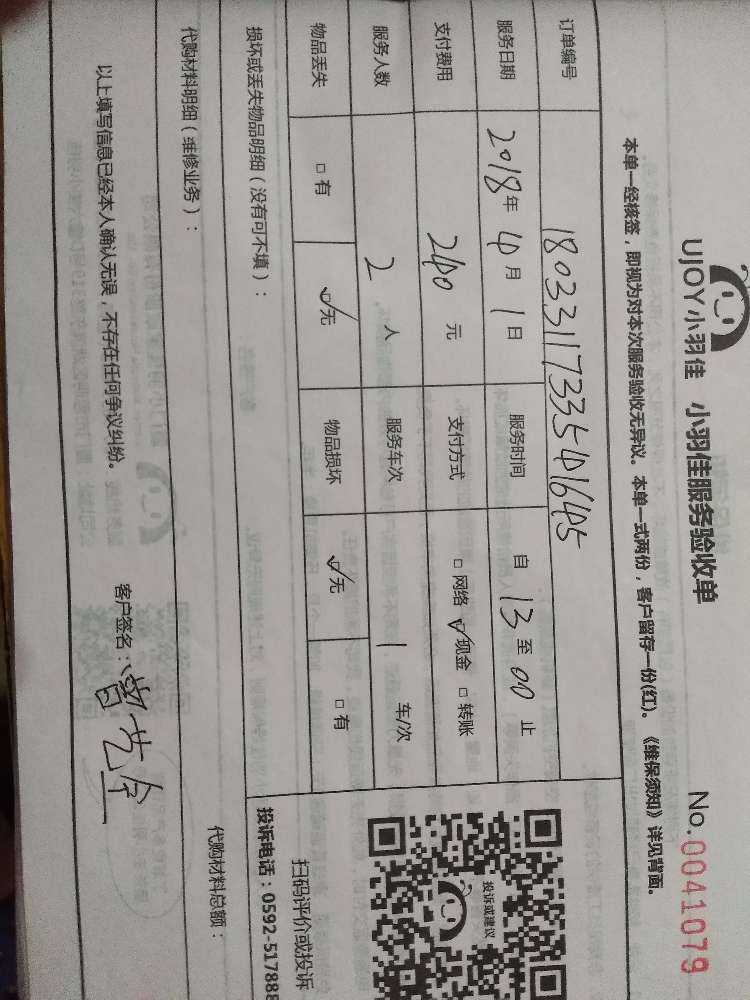 UJOY小羽佳 小羽佳服务验收单 No.0041079
本单一经核签，即视为对本次服务验收无异议。本单一式两份，客户留存一份(红)。《维保须知》详见背面。
订单编号 1803311733541645
服务日期 2018年 4月 1日 服务时间 自 13 至 00 止
支付费用 240 元 支付方式 □ 网络 ☑ 现金 □ 转账
服务人数 2 人 服务车次 1 车/次
物品丢失 □ 有 ☑ 无 物品损坏 ☑ 无 □ 有
损坏或丢失物品明细（没有可不填）：
代购材料明细（维修业务）： 代购材料总额：
以上填写信息已经本人确认无误，不存在任何争议纠纷。 客户签名：
投诉或建议
扫码评价或投诉
投诉电话：0592-517888